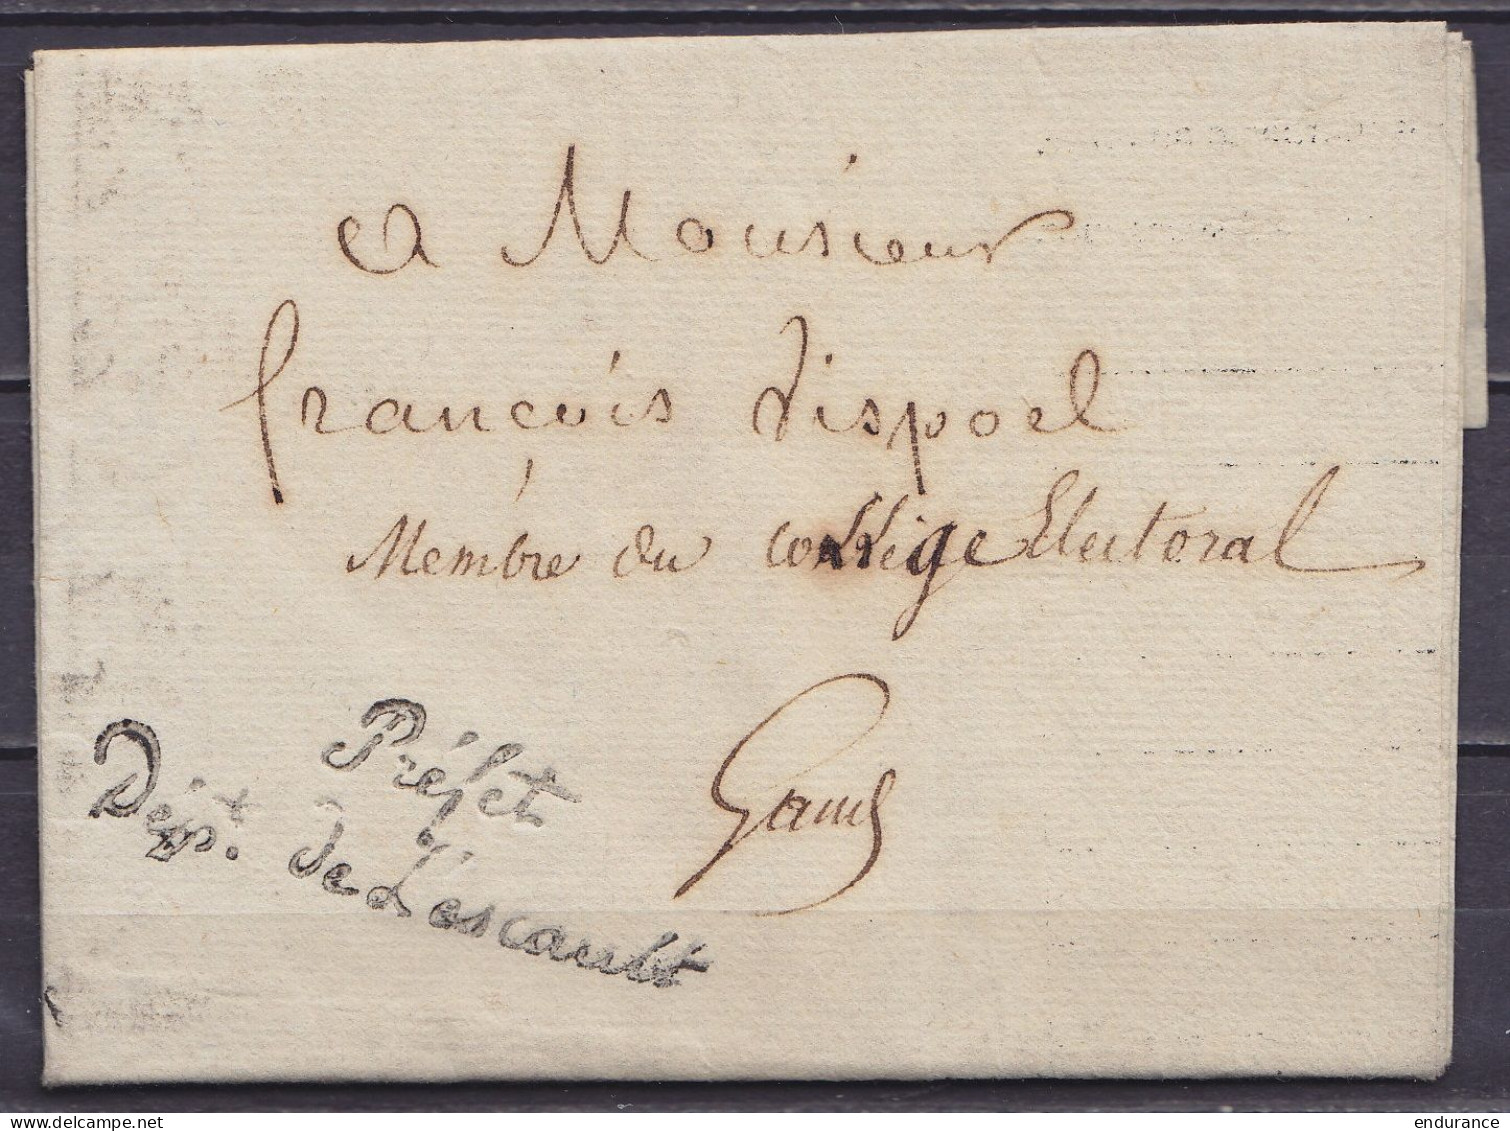 a Monsieur
françois dispoel
Membre du collége Electoral
Gand
Préfet
Dépt. de L'escault
endurance